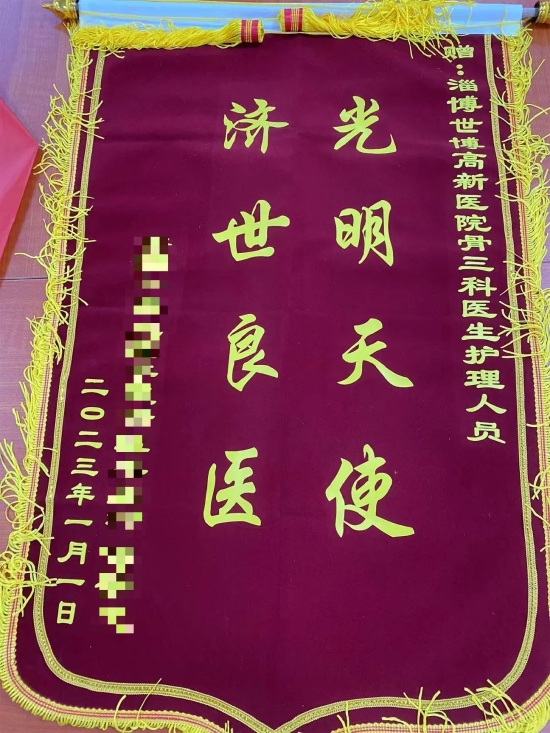 赠：淄博世博高新医院骨三科医生护理人员
光明天使
济世良医
二〇二三年一月一日